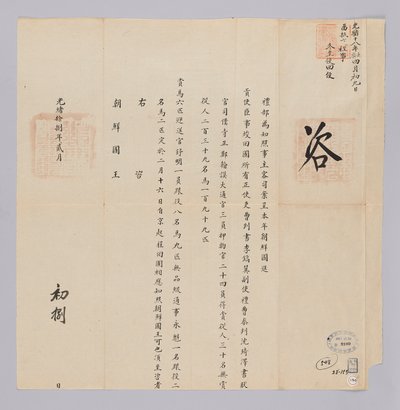 光緒十八年壬辰四月初九日
咨
禮部為知照事主客司案呈本年朝鮮國進
貢使臣事竣回國所有正使吏曹判書李鎬翼副使禮曹參判沈琦澤書狀
官司僕寺正鄭輪謨大通官三員押物官二十四員得賞從人三十名無賞
從人二百三十九名馬一百九十九匹
賞馬六匹迎送官舒明一員跟役八名馬九匹無品級通事永魁一名跟役二
名馬二匹定於二月十六日自京起程回國相應知照朝鮮國王可也須至咨者
右咨
朝鮮國王
光緒拾捌年貳月
初捌
日